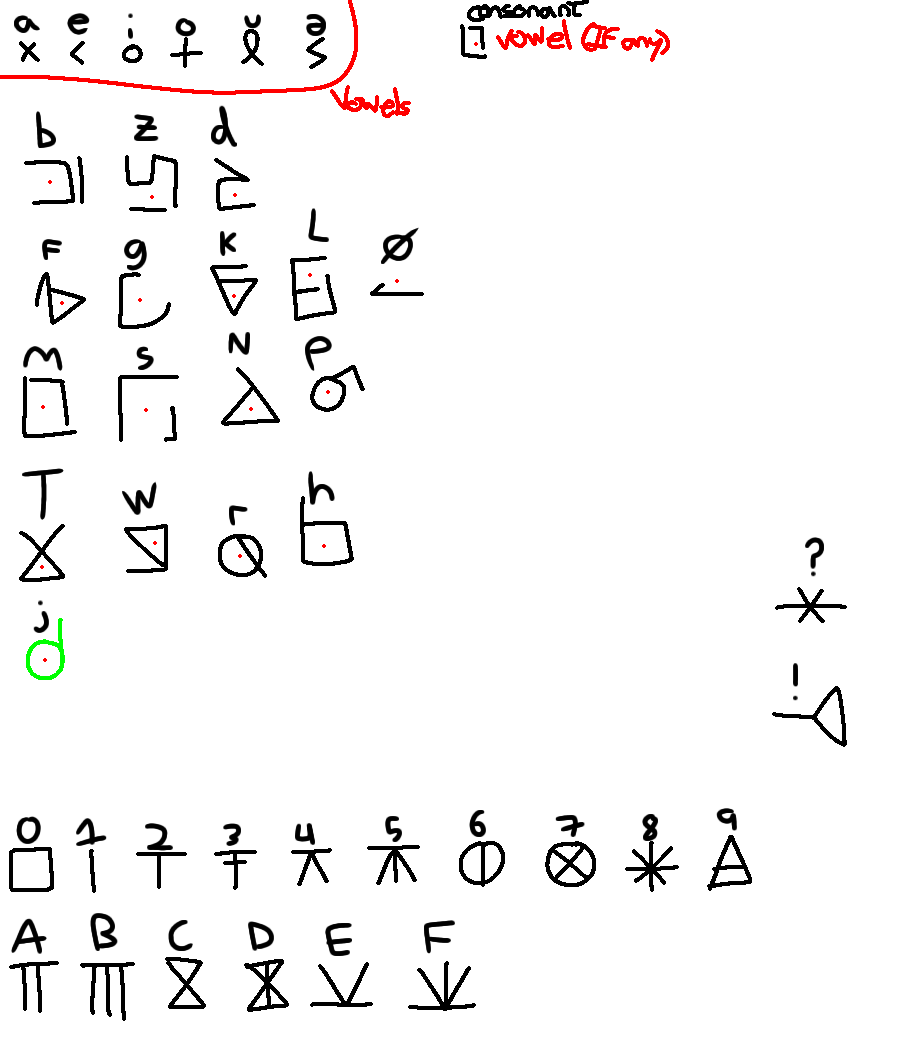 a e i o u ə
consonant
vowel (IF any)
vowels
b z d
F g K L Ø
M S N P
T W r h
j
?
!
0 1 2 3 4 5 6 7 8 9
A B C D E F